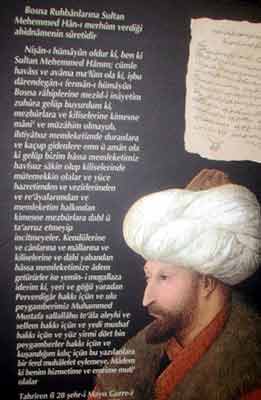 Bosna Ruhbânlarına Sultan
Mehemmed Hân-ı merhûm verdiği
ahidnâmenin sûretidir
Nişân-ı hümâyûn oldur ki, ben ki
Sultan Mehemmed Hânım; cümle
havâss ve avâma ma'lûm ola ki, işbu
dârendegân-ı fermân-ı hümâyûn
Bosna râhiplerine mezîd-i inâyetim
zuhûra gelüp buyurdum ki,
mezbûrlara ve kiliselerine kimesne
mâni' ve müzâhim olmayub,
ihtiyâtsız memleketimde duranlara
ve kaçup gidenlere emn ü amân ola
ki gelüp bizim hâssa memleketimiz
havfsız sâkin olup kiliselerinde
mütemekkin olalar ve yüce
hazretimden ve vezîrlerimden
ve re'âyalarımdan ve
memleketim halkından
kimesne mezbûrlara dahl ü
ta'arruz etmeyip
incitmeyeler. Kendülerine
ve cânlarına ve mâllarına ve
kiliselerine ve dahi yabandan
hâssa memleketimize âdem
getürürler ise yemîn-i mugallaza
iderim ki, yeri ve göğü yaradan
Perverdigâr hakkı içün ve ulu
peygamberimiz Muhammed
Mustafa sallallâhu te'âla aleyhi ve
sellem hakkı içün ve yedi mushaf
hakkı içün ve yüz yirmi dört bin
peygamberler hakkı içün ve
kuşandığım kılıç içün bu yazılanlara
bir ferd muhâlefet eylemeye. Mâdem
ki benim hizmetime ve emrime mutî'
olalar
Tahrîren fî 28 şehr-i Mayıs